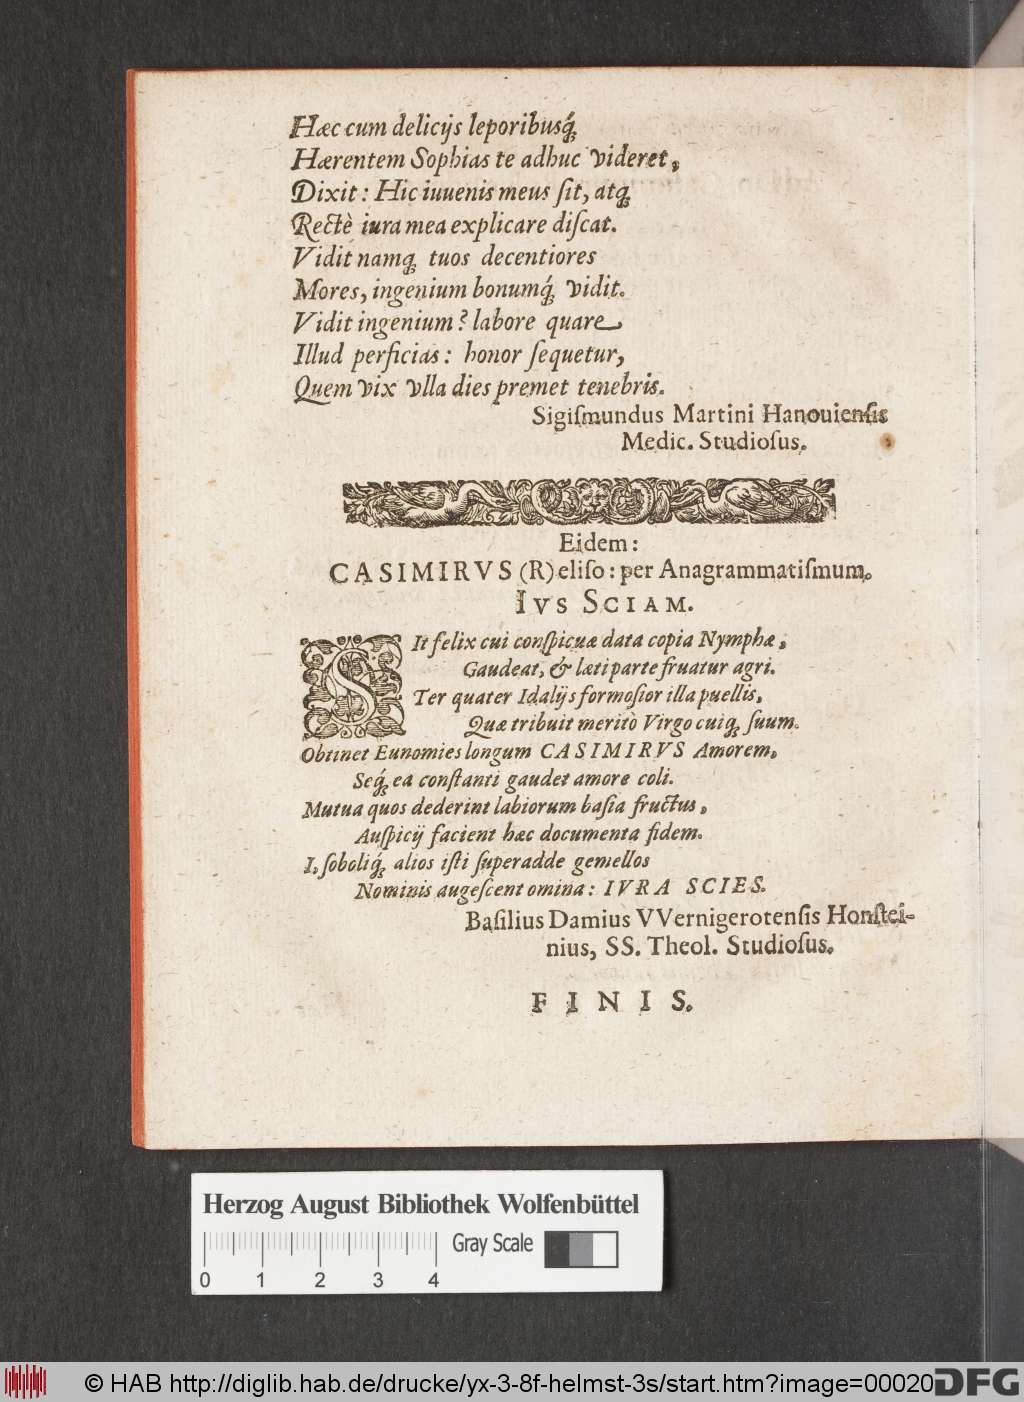 Hæc cum delicijs leporibusq́;
Hærentem Sophias te adhuc videret,
Dixit: Hic iuuenis meus ſit, atq;
Rectè iura mea explicare diſcat.
Vidit namq; tuos decentiores
Mores, ingenium bonumq́; vidit.
Vidit ingenium? labore quare
Illud perficias: honor ſequetur,
Quem vix vlla dies premet tenebris.
Sigiſmundus Martini Hanouienſis
Medic. Studioſus.
Eidem:
CASIMIRVS (R) eliſo: per Anagrammatiſmum.
IVS SCIAM.
SIt felix cui conſpicuæ data copia Nymphæ,
Gaudeat, & læti parte fruatur agri.
Ter quater Idalijs formoſior illa puellis,
Quæ tribuit meritò Virgo cuiq; ſuum.
Obtinet Eunomies longum CASIMIRVS Amorem,
Seq́; ea conſtanti gaudet amore coli.
Mutua quos dederint labiorum baſia fructus,
Auſpicij facient hæc documenta fidem.
I, ſoboliq́; alios iſti ſuperadde gemellos
Nominis augeſcent omina: IVRA SCIES.
Baſilius Damius VVernigerotenſis Honſtei-
nius, SS. Theol. Studioſus.
FINIS.
Herzog August Bibliothek Wolfenbüttel
Gray Scale
0 1 2 3 4
© HAB http://diglib.hab.de/drucke/yx-3-8f-helmst-3s/start.htm?image=00020
DFG